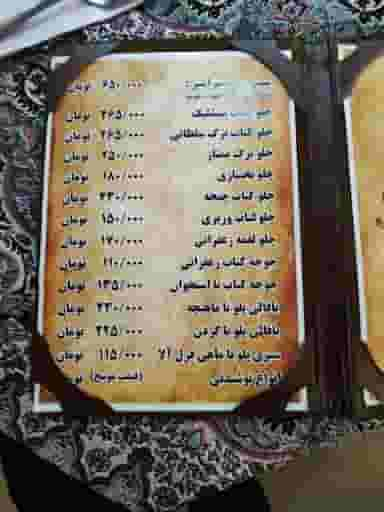 ۶۵۰/۰۰۰ تومان
۲۶۵/۰۰۰ تومان
چلو کباب برگ سلطانی ۲۶۵/۰۰۰ تومان
چلو برگ ممتاز ۲۵۰/۰۰۰ تومان
چلو بختیاری ۱۸۰/۰۰۰ تومان
چلو کباب چنجه ۲۳۰/۰۰۰ تومان
چلو کباب وزیری ۱۵۰/۰۰۰ تومان
چلو لقمه زعفرانی ۱۷۰/۰۰۰ تومان
جوجه کباب زعفرانی ۱۱۰/۰۰۰ تومان
جوجه کباب با استخوان ۱۳۵/۰۰۰ تومان
باقالی پلو با ماهیچه ۲۲۰/۰۰۰ تومان
باقالی پلو با گردن ۲۲۵/۰۰۰ تومان
سبزی پلو با ماهی قزل آلا ۱۱۵/۰۰۰ تومان
انواع نوشیدنی (قیمت مصوب)